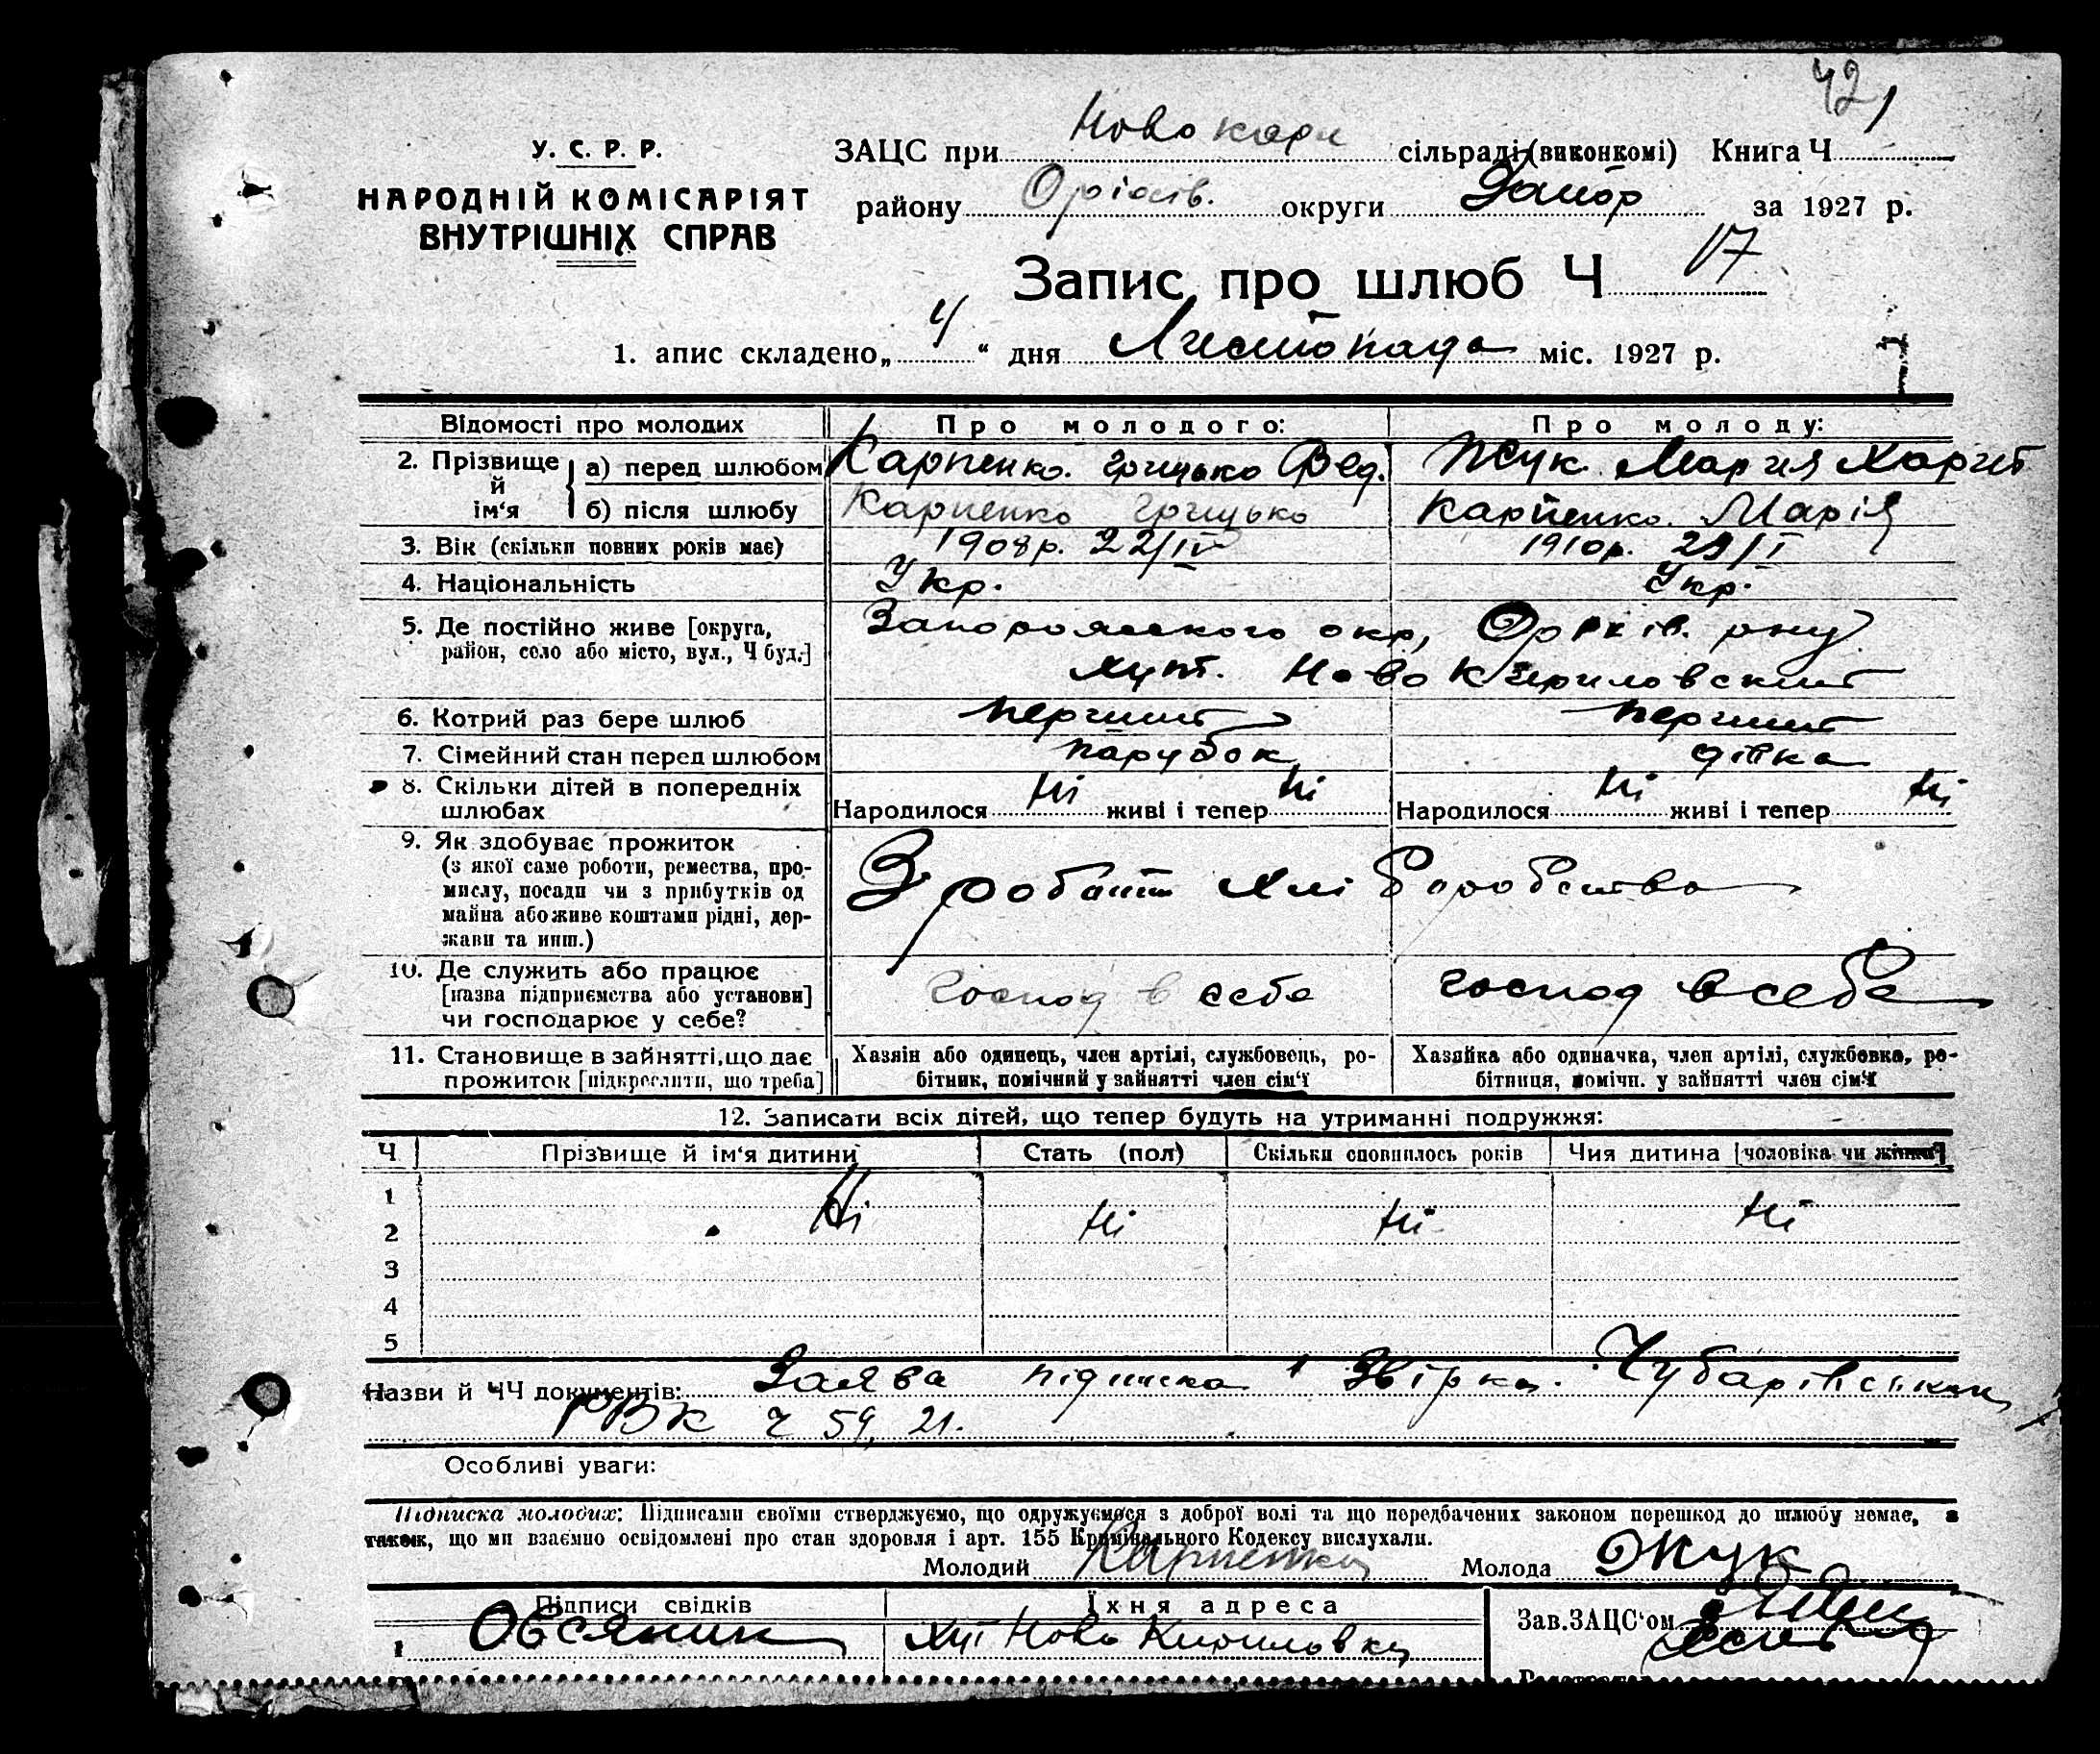 421
У. С. Р. Р.
НАРОДНІЙ КОМІСАРІЯТ
ВНУТРІШНІХ СПРАВ
ЗАЦС при Ново карл сільраді (виконкомі) Книга Ч
району Оріхів. округи Запор за 1927 р.
Запис про шлюб Ч 17
1. апис складено „ 4 “ дня Листопада міс. 1927 р.
Відомості про молодих Про молодого: Про молоду:
2. Прізвище й ім‘я а) перед шлюбом Карпенко. Грицько Фед. Жук Мария Харит
б) після шлюбу Карпенко Грицько Карпенко. Марія
3. Вік (скільки повних років має) 1908р. 22/IV 1910р. 29/I
4. Національність Укр. Укр.
5. Де постійно живе [округа, район, село або місто, вул., Ч буд.] Запорожського окр, Оріхів. рну
хут. Ново Кириловский
6. Котрий раз бере шлюб перший перший
7. Сімейний стан перед шлюбом парубок дівка
8. Скільки дітей в попередніх шлюбах Народилося ні живі і тепер ні Народилося ні живі і тепер ні
9. Як здобуває прожиток
(з якої саме роботи, ремества, про-
мислу, посади чи з прибутків од
майна або живе коштами рідні, дер-
жави та инш.)
З роботи хліборобства
10. Де служить або працює
[назва підприємства або установи]
чи господарює у себе?
господ в себе господ в себе
11. Становище в зайнятті, що дає
прожиток [підкреслити, що треба]
Хазяін або одинець, член артілі, службовець, ро-
бітник, помічний у зайнятті член сім‘ї
Хазяйка або одиначка, член артілі, службовка, ро-
бітниця, помічн. у зайнятті член сім‘ї
12. Записати всіх дітей, що тепер будуть на утриманні подружжя:
Ч Прізвище й ім‘я дитини Стать (пол) Скільки сповнилось років Чия дитина [чоловіка чи жінки]
1
2 Ні ні ні ні
3
4
5
Назви й ЧЧ документів: Заява підписка і Звірка. Чубарівськи
РВК ч 59, 21.
Особливі уваги:
Підписка молодих: Підписами своїми стверджуємо, що одружуємося з доброї волі та що передбачених законом перешкод до шлюбу немає, а
також, що ми взаємно освідомлені про стан здоровля і арт. 155 Кримінального Кодексу вислухали.
Молодий Карпенко Молода Жук
Підписи свідків Їхня адреса Зав.ЗАЦС‘ом
1 Овсяник хут Ново Кириловка